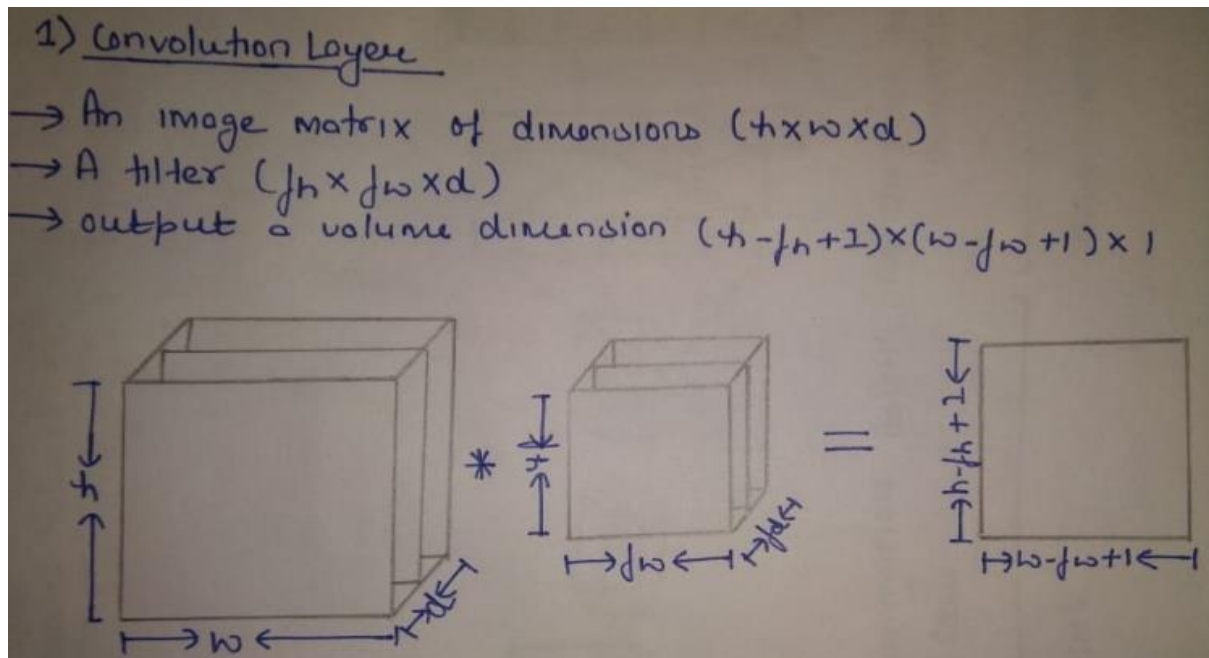 1) Convolution Layer
→ An image matrix of dimensions (h x w x d)
→ A filter (fh x fw x d)
→ output a volume dimension (h - fh + 1) x (w - fw + 1) x 1
h
w
d
*
fw
fd
=
h - fh + 1
w - fw + 1